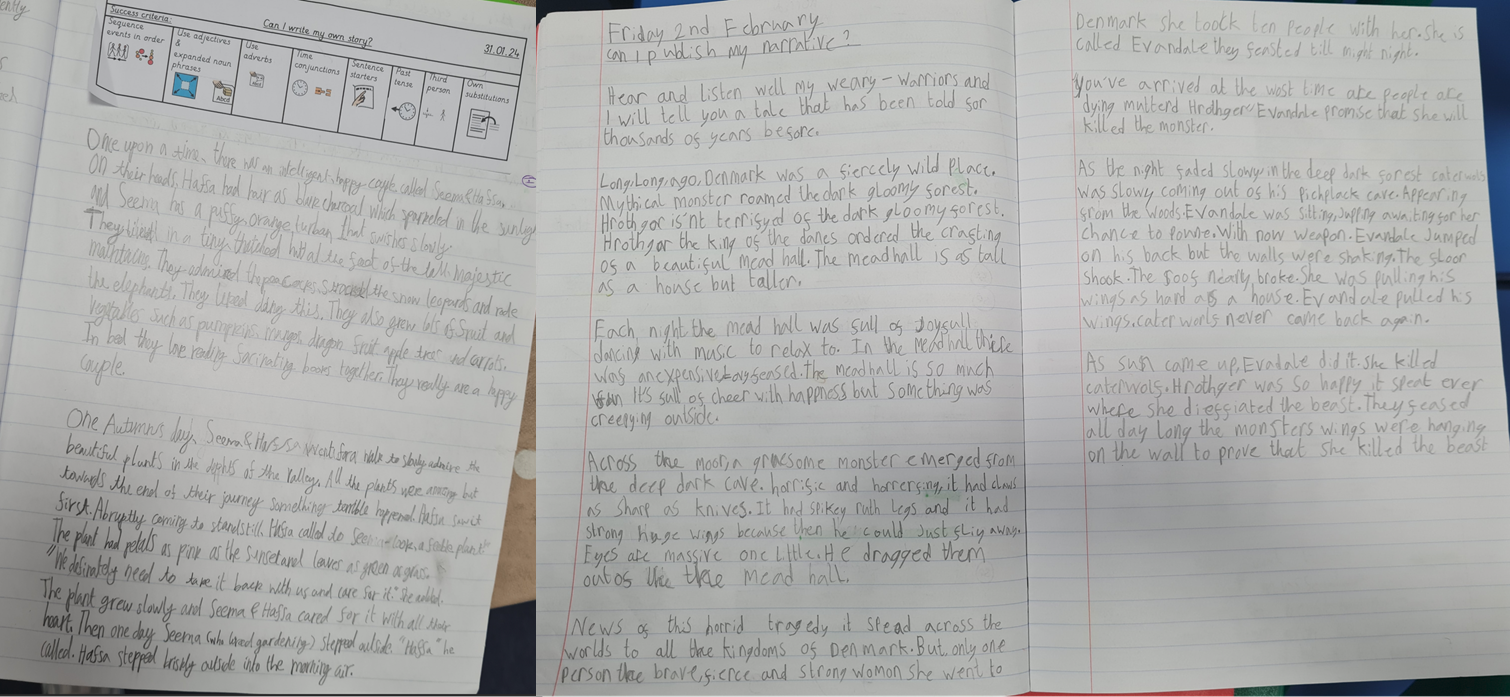 ently
Success criteria:
Can I write my own story?
31.01.24
Sequence events in order
Use adjectives & expanded noun phrases
Use adverbs
Time conjunctions
Sentence starters
Past tense
Third person
Own substitutions
Once upon a time, there was an intelligent, happy couple called Seema & Hassa.
On their heads, Hafsa had hair as black charcoal which sparkled in the sunlight
and Seema has a puffy, orange turban that swishes slowly
They lived in a tiny, thatched hut at the foot of the tall majestic
mountains. They admired the peacocks stroked the snow leopards and rode
the elephants. They liked doing this. They also grew lots of fruit and
vegtables such as pumpkins, mangos, dragon fruit apple trees and carrots.
In bed they love reading facinating books together. They really are a happy
couple.
One Autumns day, Seema & Hafssa went for a walk to slowly admire the
beautiful plants in the depths of the valley. All the plants were amazing but
towards the end of their journey something terrible happened. Hafsa saw it
first. Abruptly coming to standstill. Hafsa called to Seema look, a plant"
The plant had petals as pink as the sunset and leaves as green as grass.
"We definately need to take it back with us and care for it." She
The plant grew slowly and Seema & Hafsa cared for it with all their
heart. Then one day Seema (who loved gardening) stepped outside "Hafsa" he
called. Hafsa stepped briskly outside into the morning air.
Friday 2nd February
can I publish my narrative?
Hear and listen well my weary-warriors and
I will tell you a tale that has been told for
thousands of years before.
Long, Long, ago, Denmark was a fiercely wild Place.
Mythical monster roamed the dark gloomy forest.
Hrothgor is'nt terrifyed of the dark gloomy forest.
Hrothgar the king of the danes ordered the crafting
of a beautiful mead hall. The meadhall is as tall
as a house but taller.
Each, night the mead hall was full of Joyfull
dancing with music to relax to. In the meadhall there
was an expensive feased. The meadhall is so much
fun it's full of cheer with happness but something was
creepying outside.
Across the moor, a gruesome monster emerged from
the deep dark cave. horrific and horrerfing, it had claws
as sharp as knives. It had spikey ruth legs and it had
strong huge wings because then he could Just fliy away.
Eyes are massive one little. He dragged them
out of the mead hall.
News of this horrid tragedy it spead across the
worlds to all the kingdoms of Denmark. But, only one
person the brave, fierce and strong womon she went to
Denmark she toock ten people with her. she is
called Evandale they feasted till might night.
You've arrived at the wost time are people are
dying mutterd Hrothger" Evandale promise that she will
killed the monster.
As the night faded slowy in the deep dark forest caterwols
was slowy coming out of his pichplack cave. Appearing
from the woods. Evandale was sitting, awaiting for her
chance to powne. With now weapon. Evandale Jumped
on his back but the walls were shaking. The floor
shook. The roof nearly broke. She was pulling his
wings as hard as a house. Evandale pulled his
wings. caterwols never came back again.
As sun came up, Evadale did it. she killed
caterwols. Hrothger was so happy it speat ever
where she dieffiated the beast. They feased
all day long the monsters wings were hanging
on the wall to prove that she killed the beast